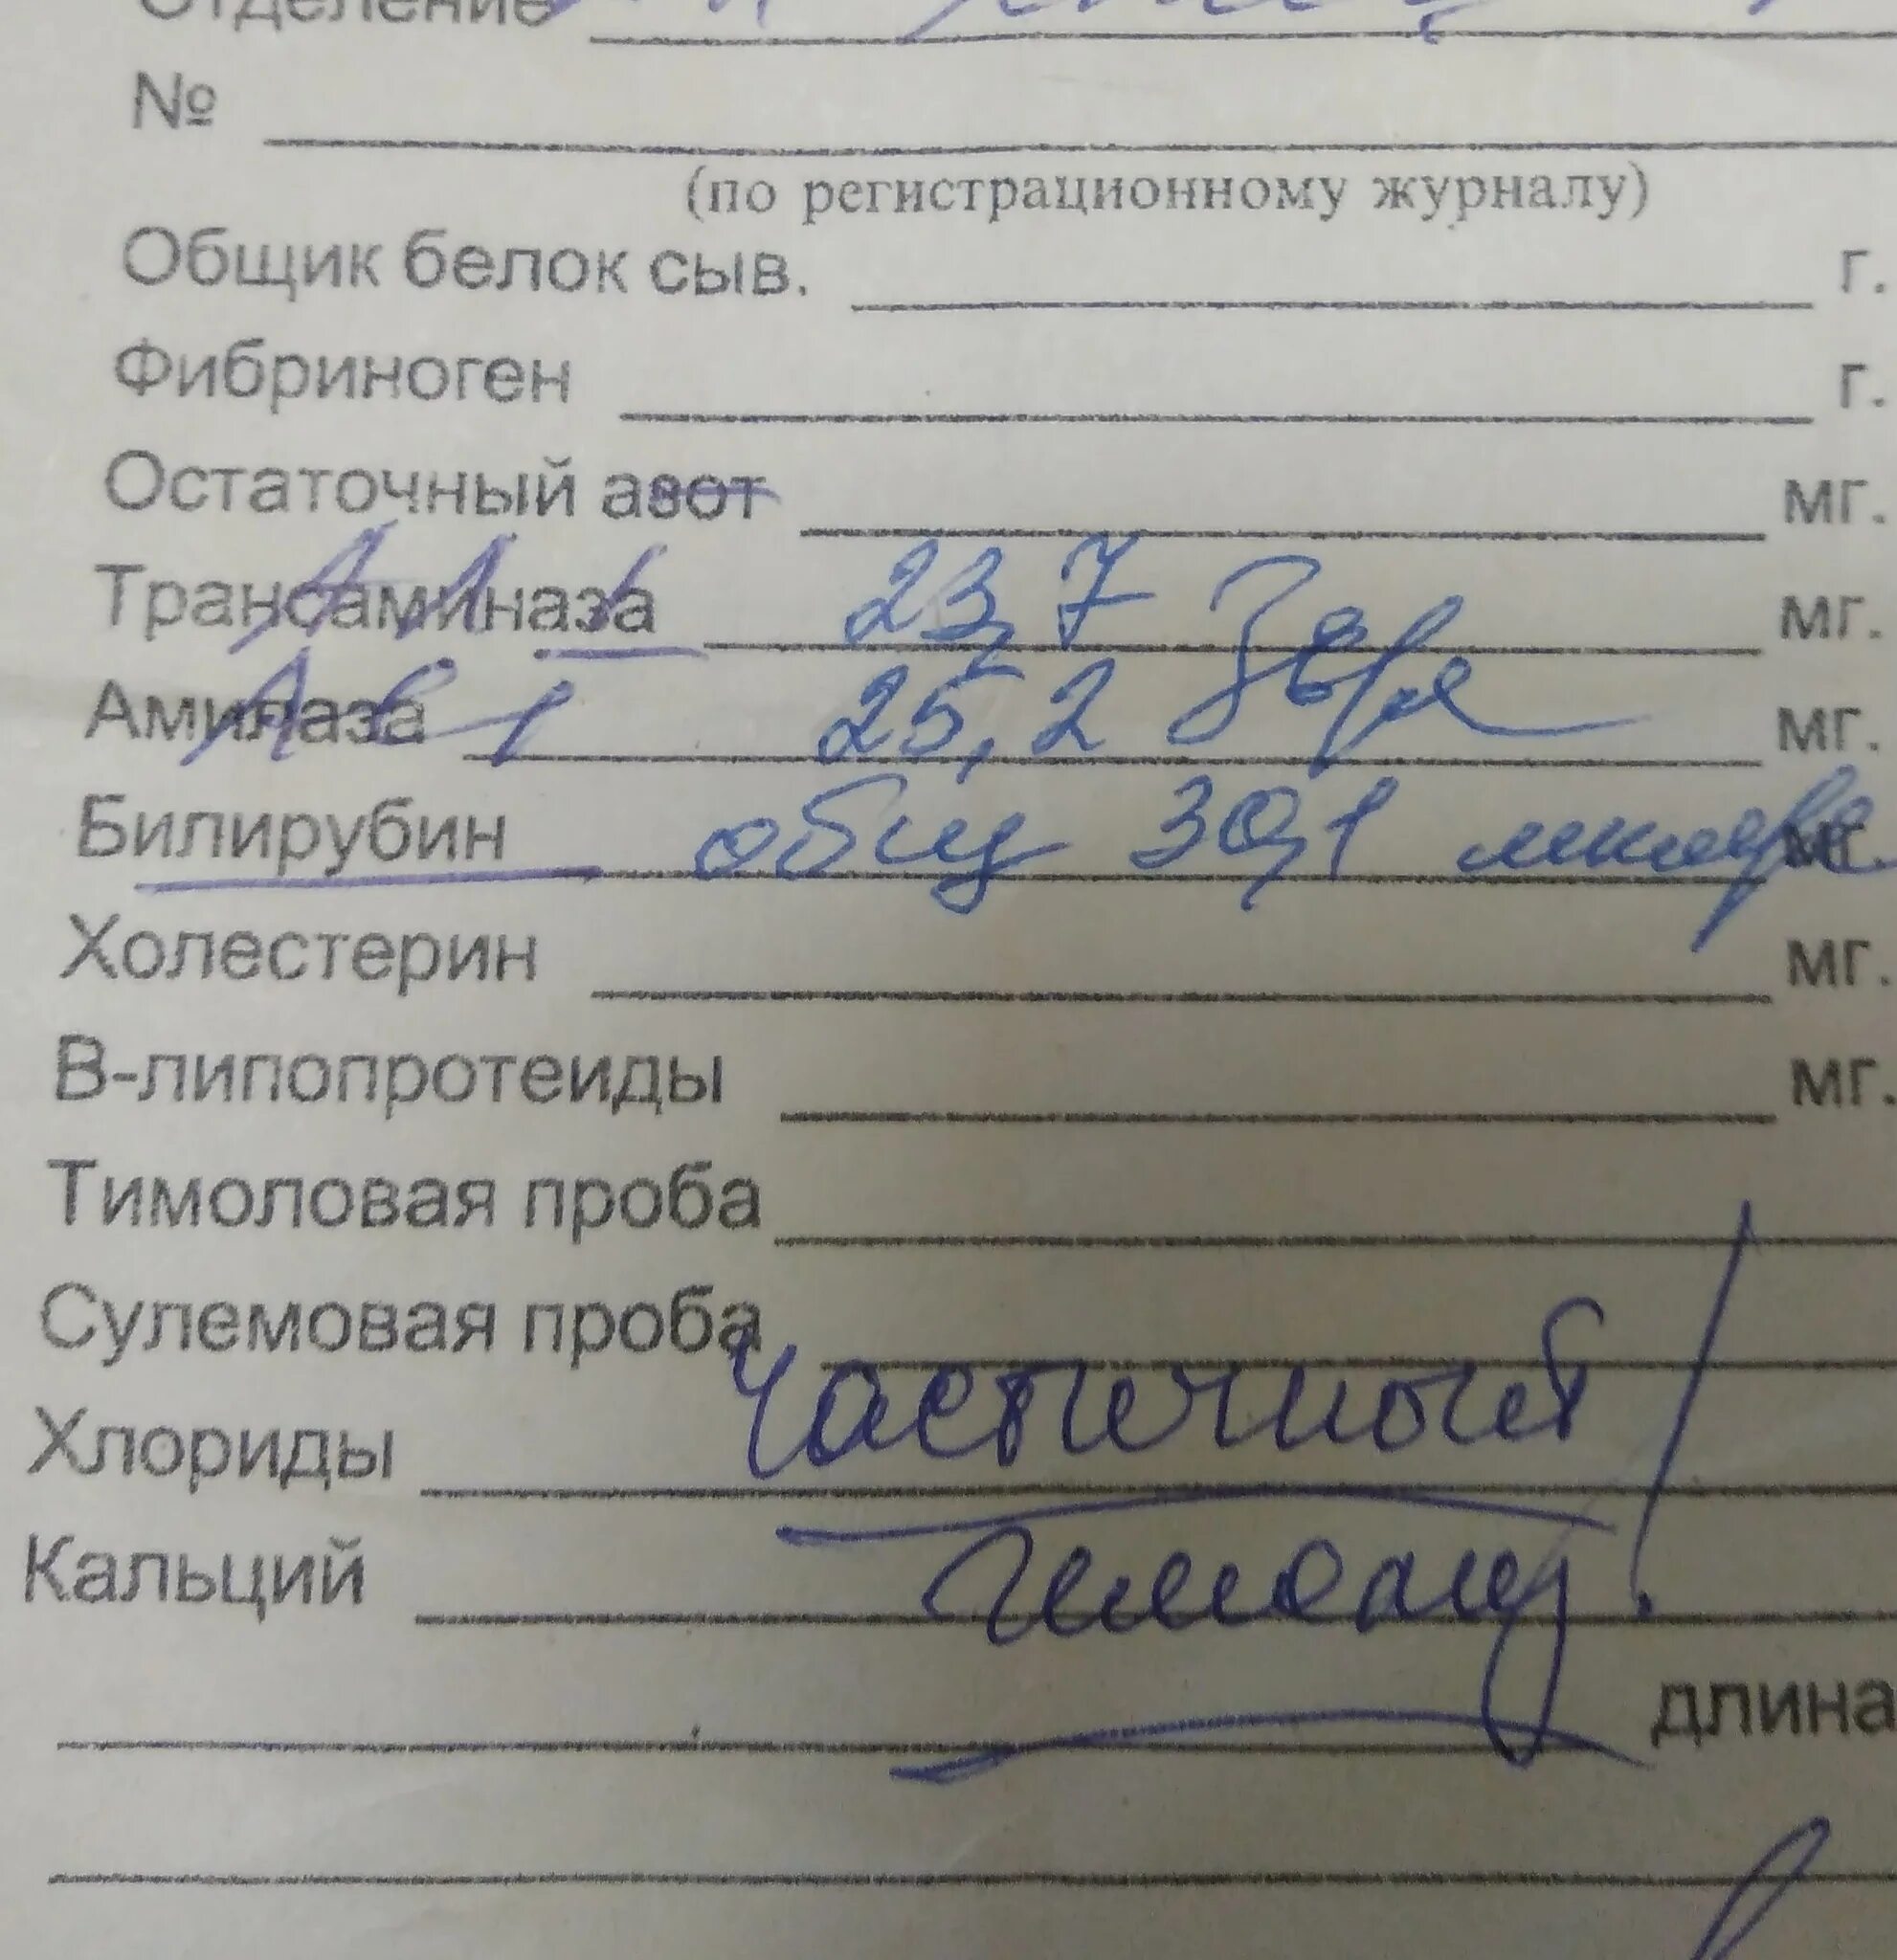 Отделение
№
(по регистрационному журналу)
Общик белок сыв. г.
Фибриноген г.
Остаточный азот мг.
Трансаминаза АЛТ 23,7 мг.
Амилаза АСТ 25,2 мг.
Билирубин общ 30,1 мг.
Холестерин мг.
В-липопротеиды мг.
Тимоловая проба
Сулемовая проба
Частичный
Хлориды
Гемолиз!
Кальций
длина